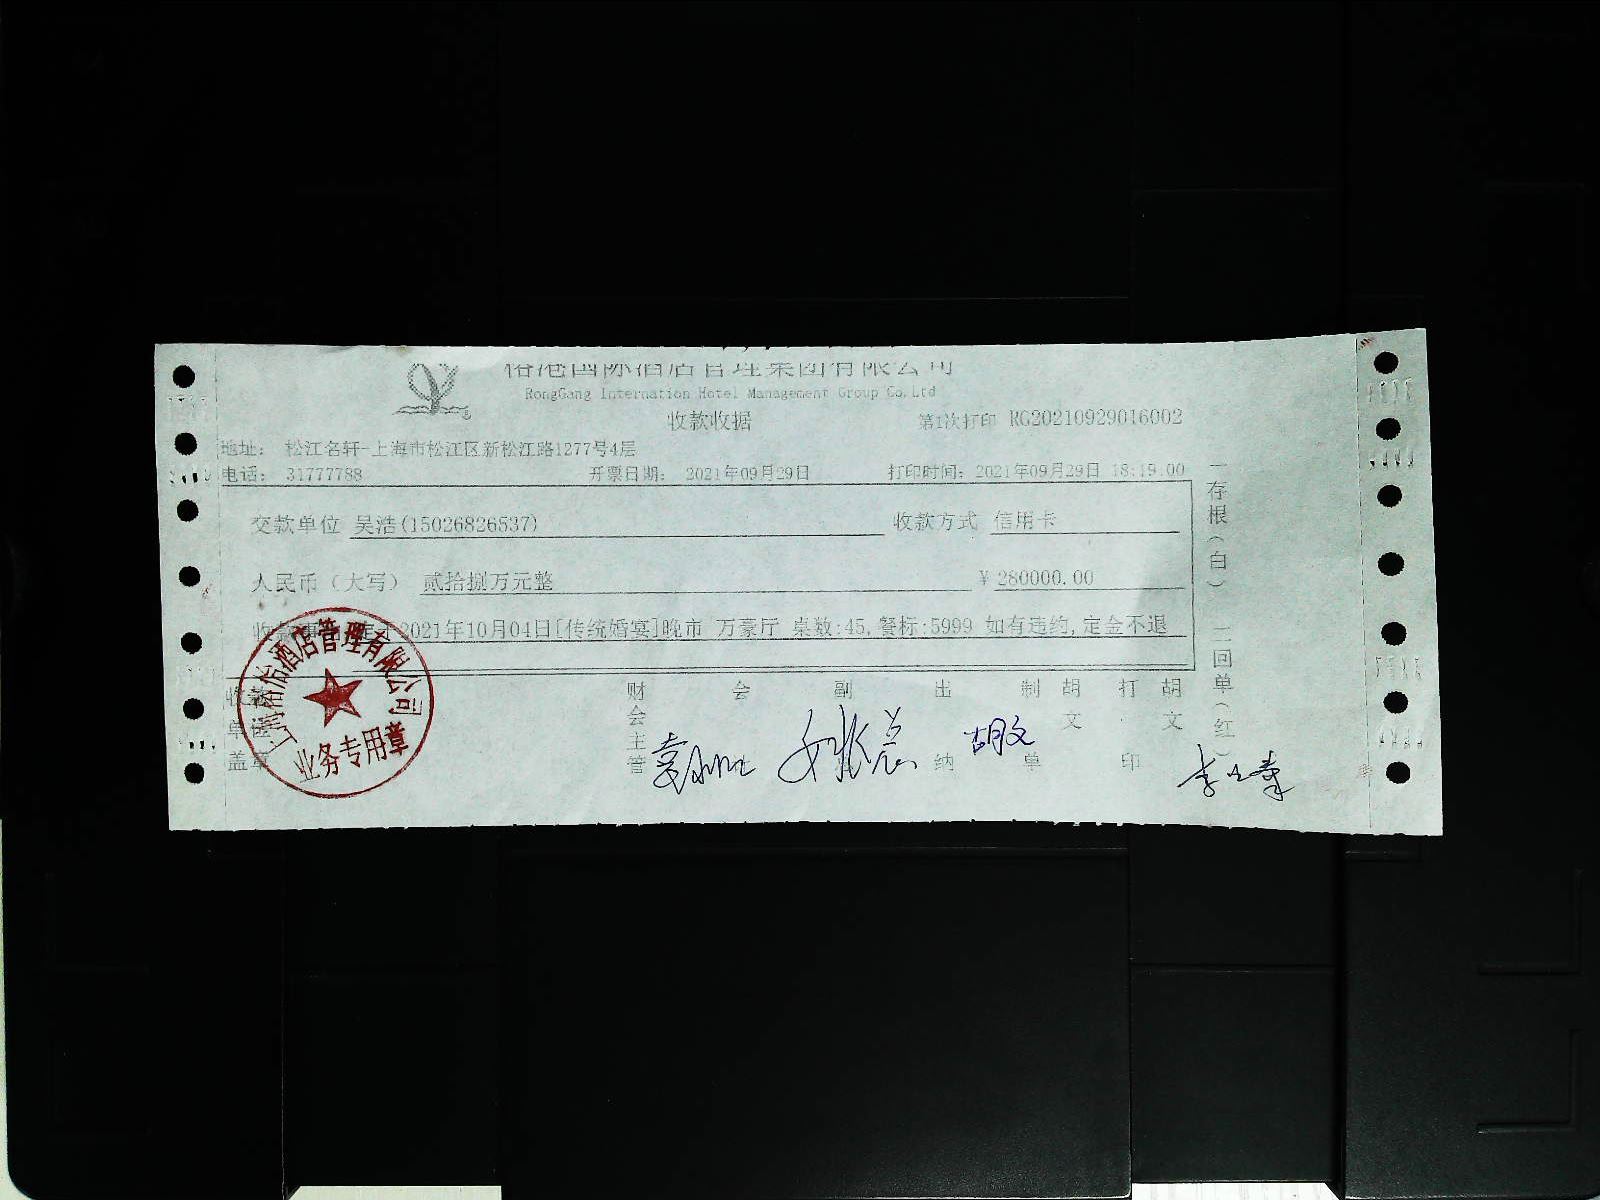 榕港国际酒店管理集团有限公司
RongGang Internation Hotel Management Group Co.Ltd
收款收据
第1次打印 RG20210929016002
地址： 松江名轩-上海市松江区新松江路1277号4层
电话： 31777788 开票日期： 2021年09月29日 打印时间：2021年09月29日 18:19:00
交款单位 吴浩(15026826537) 收款方式 信用卡
人民币（大写） 贰拾捌万元整 ￥280000.00
收款事 2021年10月04日[传统婚宴]晚市 万豪厅 桌数:45,餐标:5999 如有违约,定金不退
收款单位盖章 财会主管 会 副 出纳 制单 胡文 打印 胡文
胡文
一存根（白） 二回单（红）
酒店管理有限公司
业务专用章